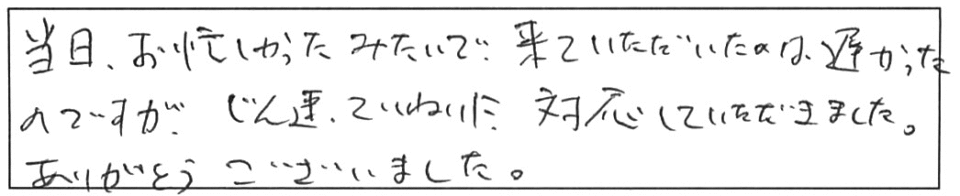 当日、お忙しかったみたいで、来ていただいたのは、遅かった
のですが、じん速、ていねいに、対応していただきました。
ありがとうございました。